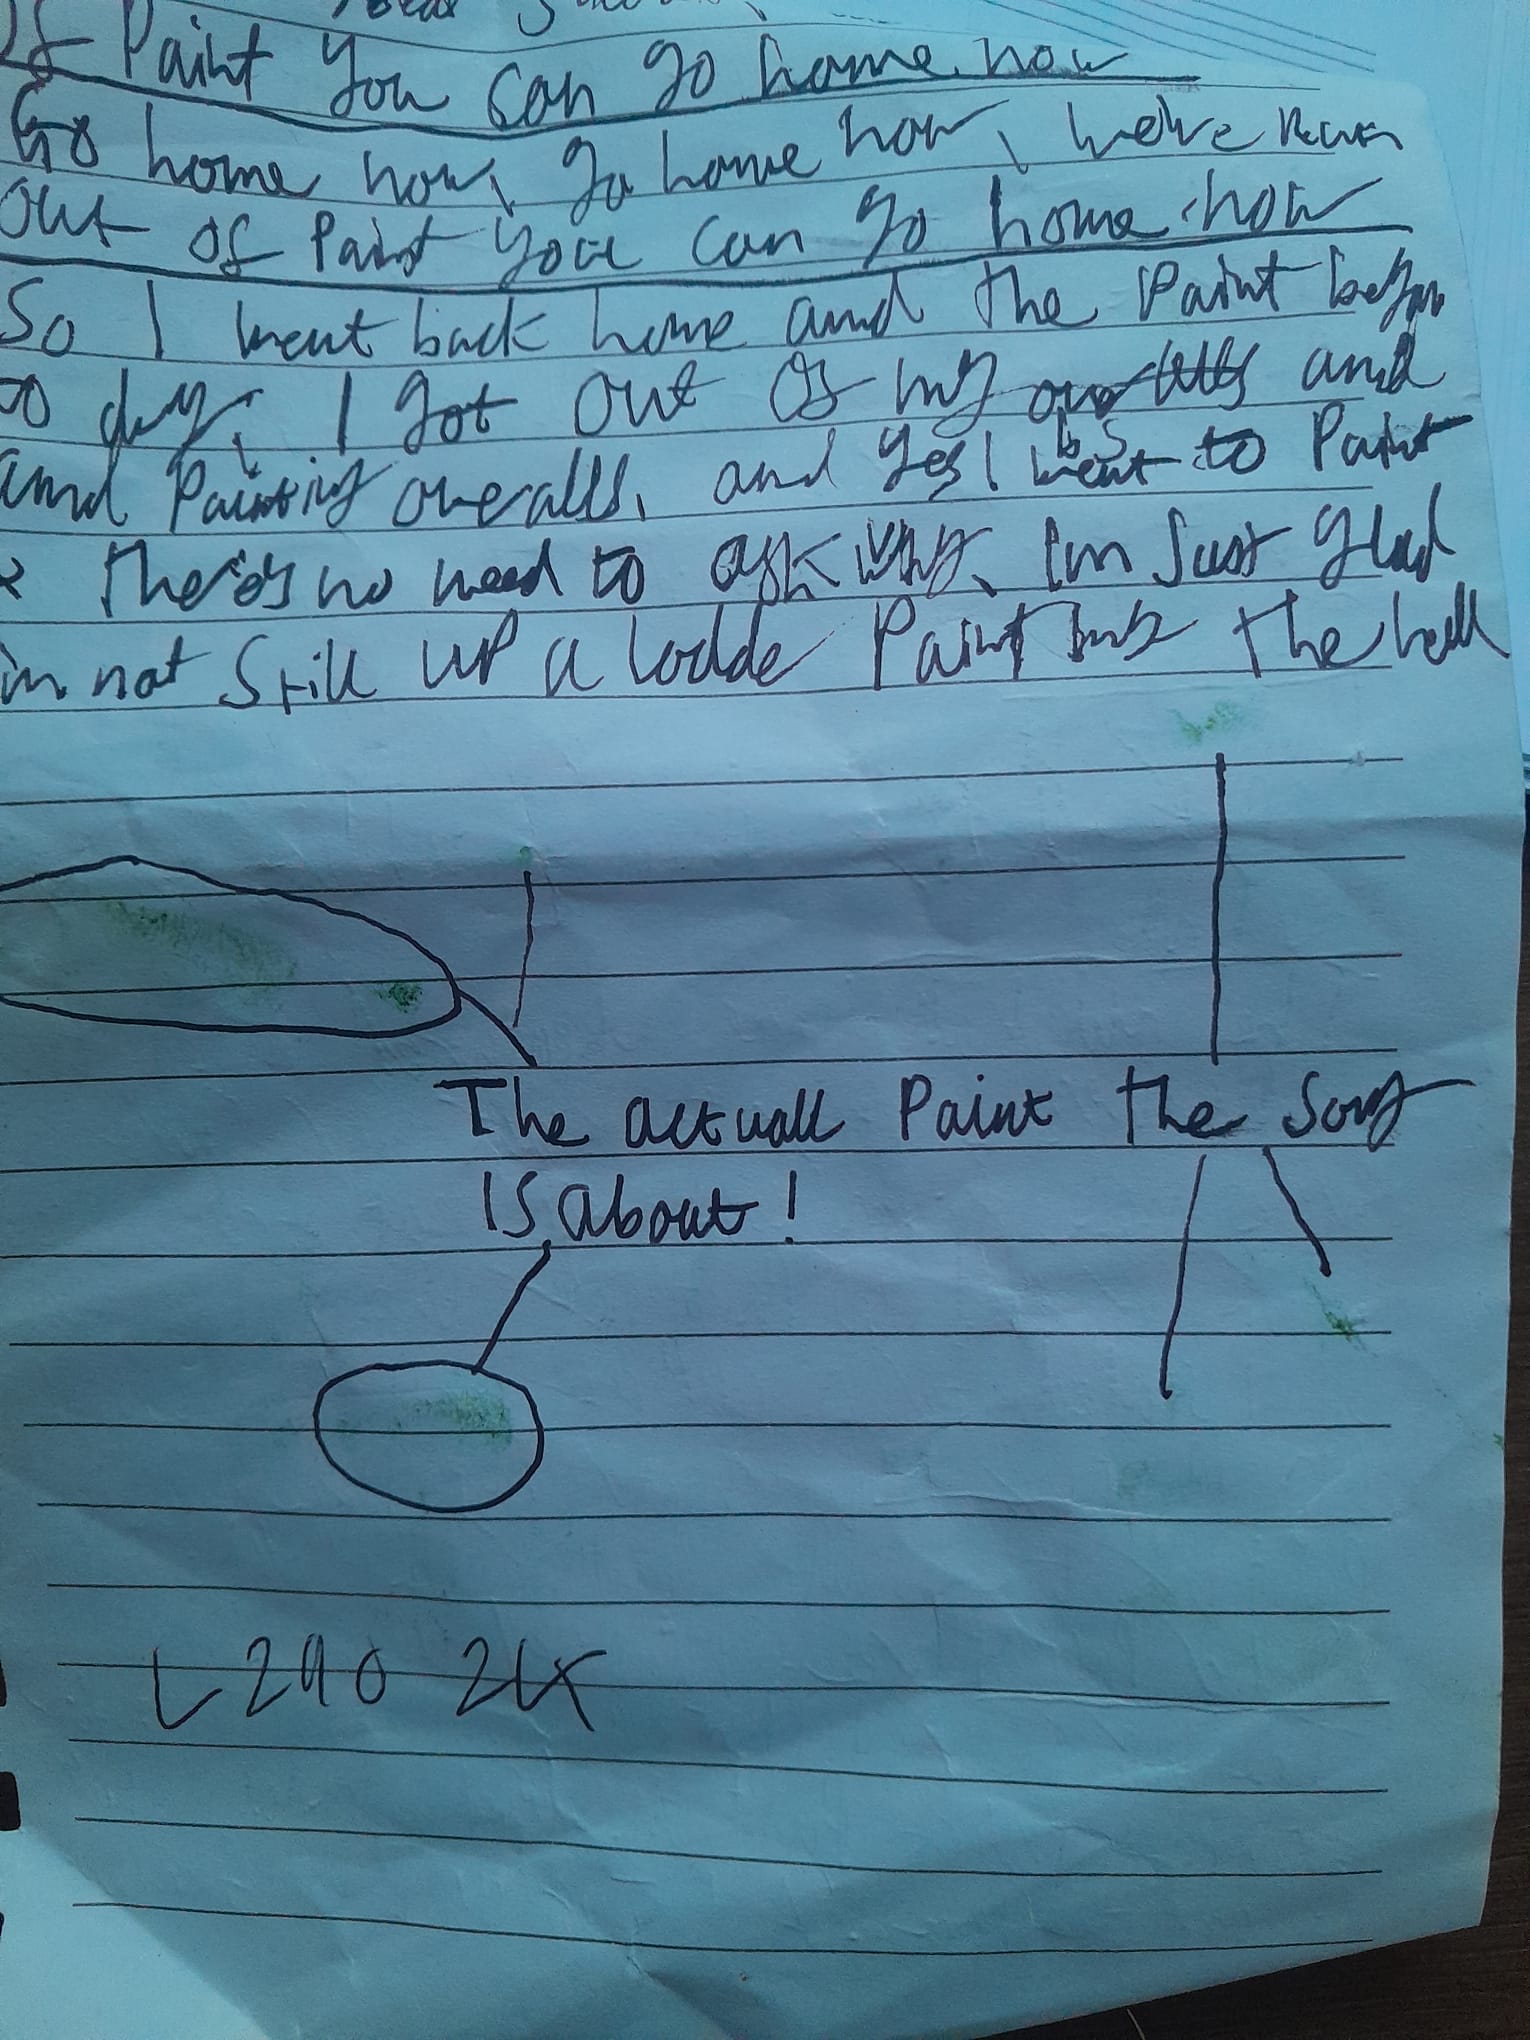 of Paint You can go home now
Go home now, go home now, We've Run
out of Paint you can go home now
So I went back home and the Paint began
to dry, I got out of my and
and Painting overalls, and yes I went to Paint
there's no need to ask why, Im Just glad
im not Still up a ladde Paint the
The actuall Paint the Song
IS about!